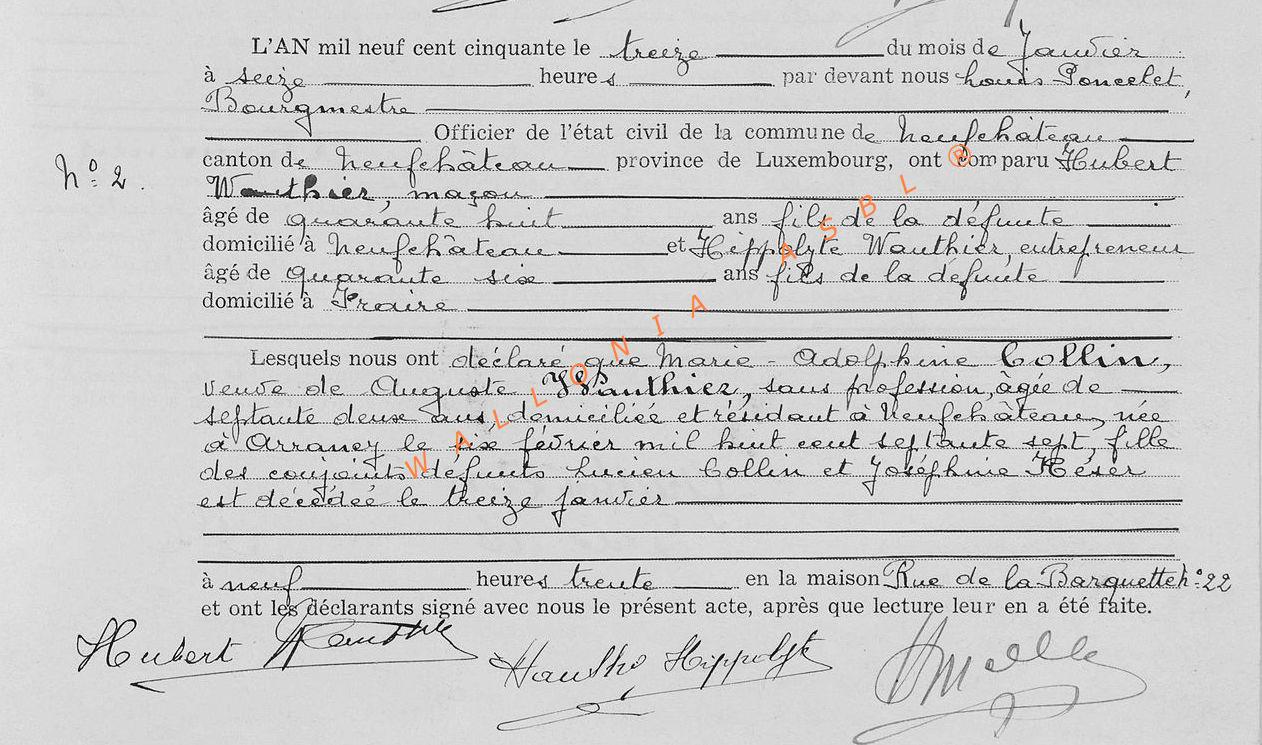 L'AN mil neuf cent cinquante le treize du mois de Janvier
à seize heures par devant nous Louis Poncelet,
Bourgmestre
Officier de l'état civil de la commune de Neufchâteau
N° 2.
canton de Neufchâteau province de Luxembourg, ont comparu Hubert
Wauthier, maçon
âgé de quarante huit ans fils de la défunte
domicilié à Neufchâteau et Hippolyte Wauthier, entrepreneur
âgé de quarante six ans fils de la défunte
domicilié à Fraire
Lesquels nous ont déclaré que Marie-Adolphine Collin,
veuve de Auguste Wauthier, sans profession, âgée de
septante deux ans, domiciliée et résidant à Neufchâteau, née
à Arrancy le six février mil huit cent septante sept, fille
des conjoints défunts Lucien Collin et Joséphine Héser
est décédée le treize janvier
à neuf heures trente en la maison Rue de la Barquette n° 22
et ont les déclarants signé avec nous le présent acte, après que lecture leur en a été faite.
Hubert Wauthier
Hippolyte
WALLONIA ASBL ®